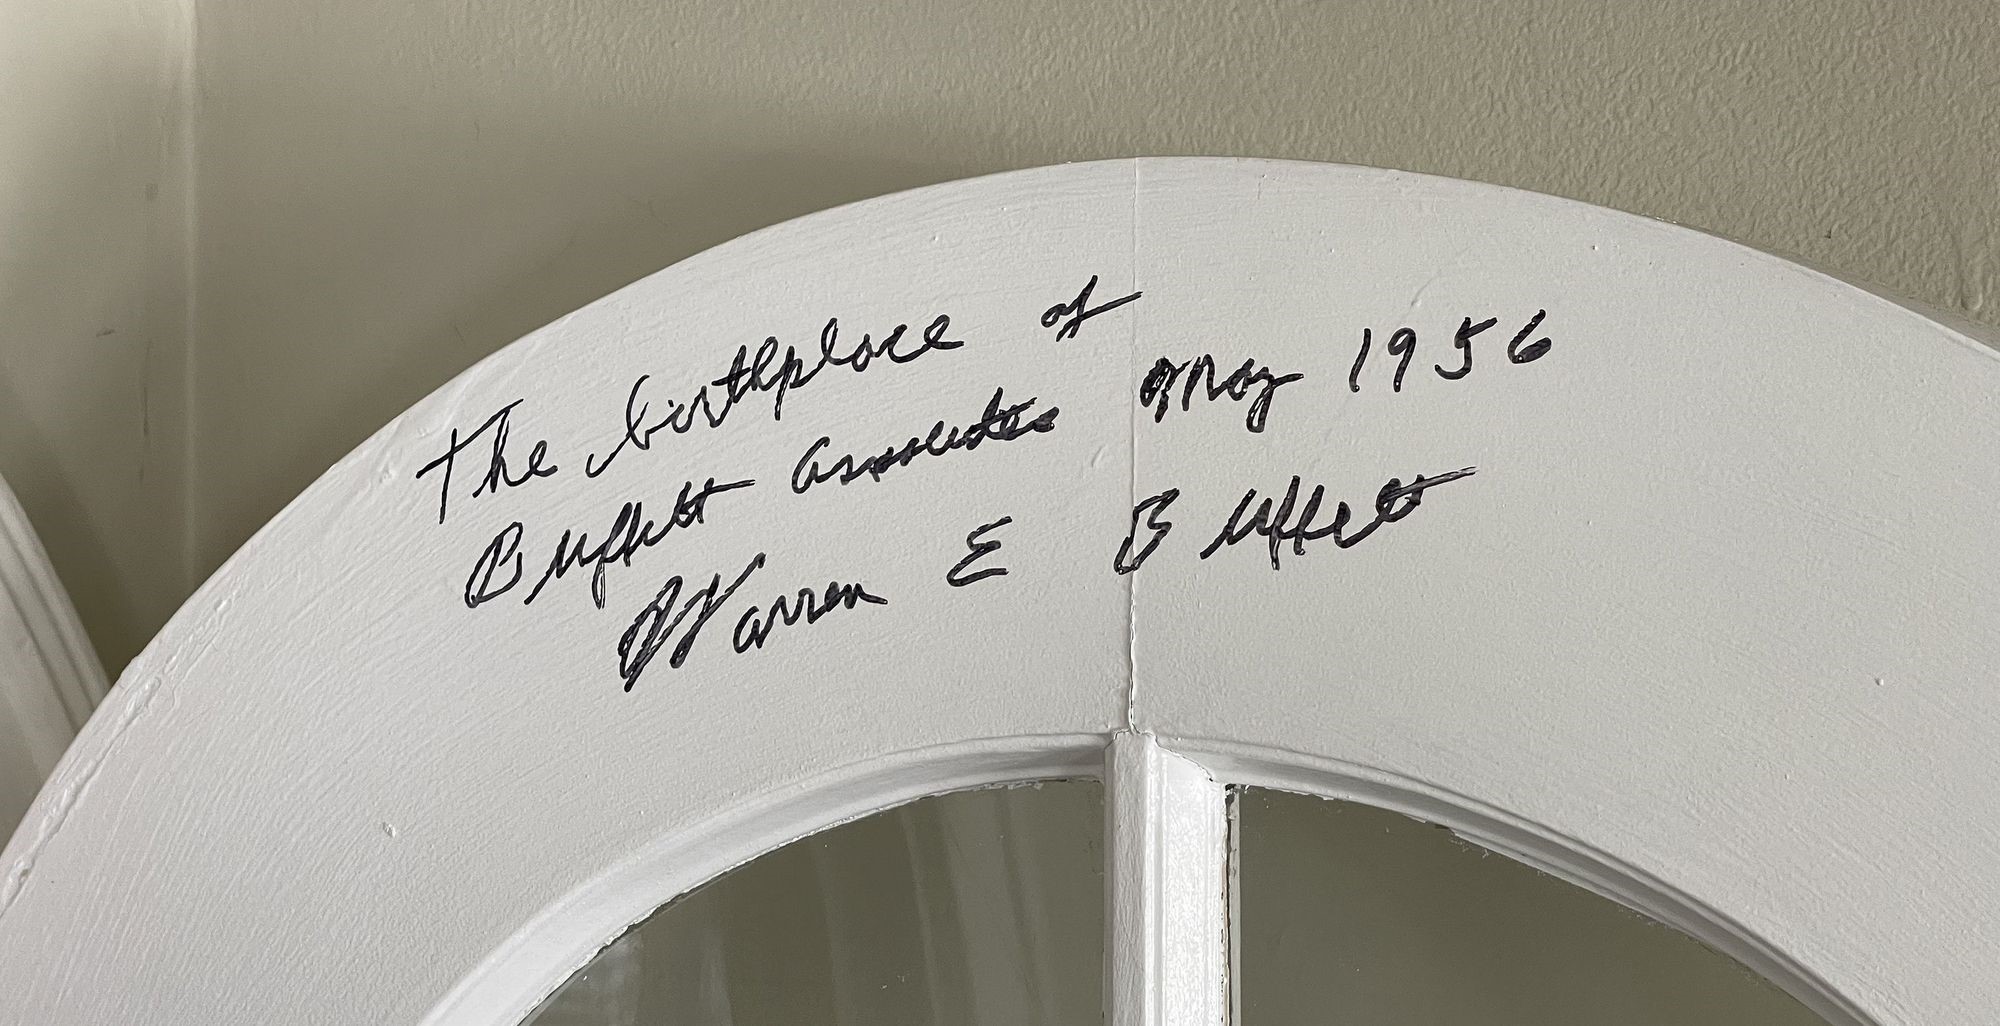 The birthplace of
Buffett Associates May 1956
Warren E Buffett